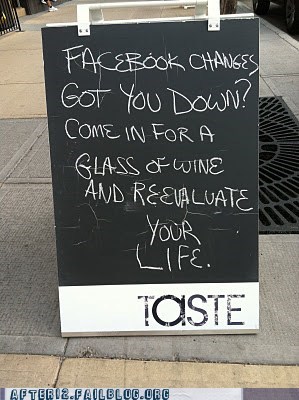 FACEBOOK CHANGES
GOT YOU DOWN?
COME IN FOR A
GLASS OF WINE
AND REEVALUATE
YOUR
LIFE.
TaSTE
AFTER12.FAILBLOG.ORG